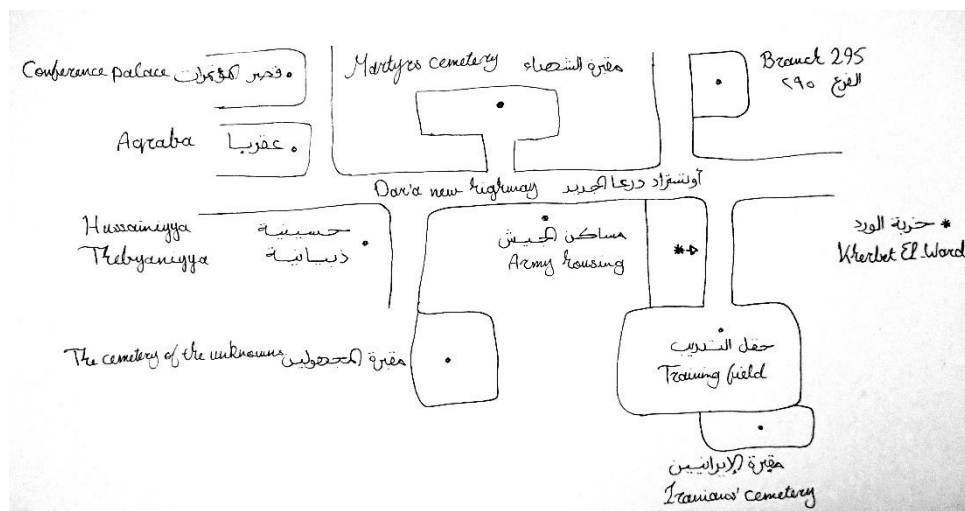 Conference palace قصر المؤتمرات
Martyrs cemetery مقبرة الشهداء
Branch 295
الفرع ٢٩٥
Aqraba عقربا
Dar'a new highway أوتستراد درعا الجديد
Hussainiyya حسينية
Thebyaniyya ذبيانية
مساكن الجيش
Army housing
خربة الورد *
Kherbet El-Ward
The cemetery of the unknowns مقبرة المجهولين
حقل التدريب
Training field
مقبرة الإيرانيين
Iranians' cemetery